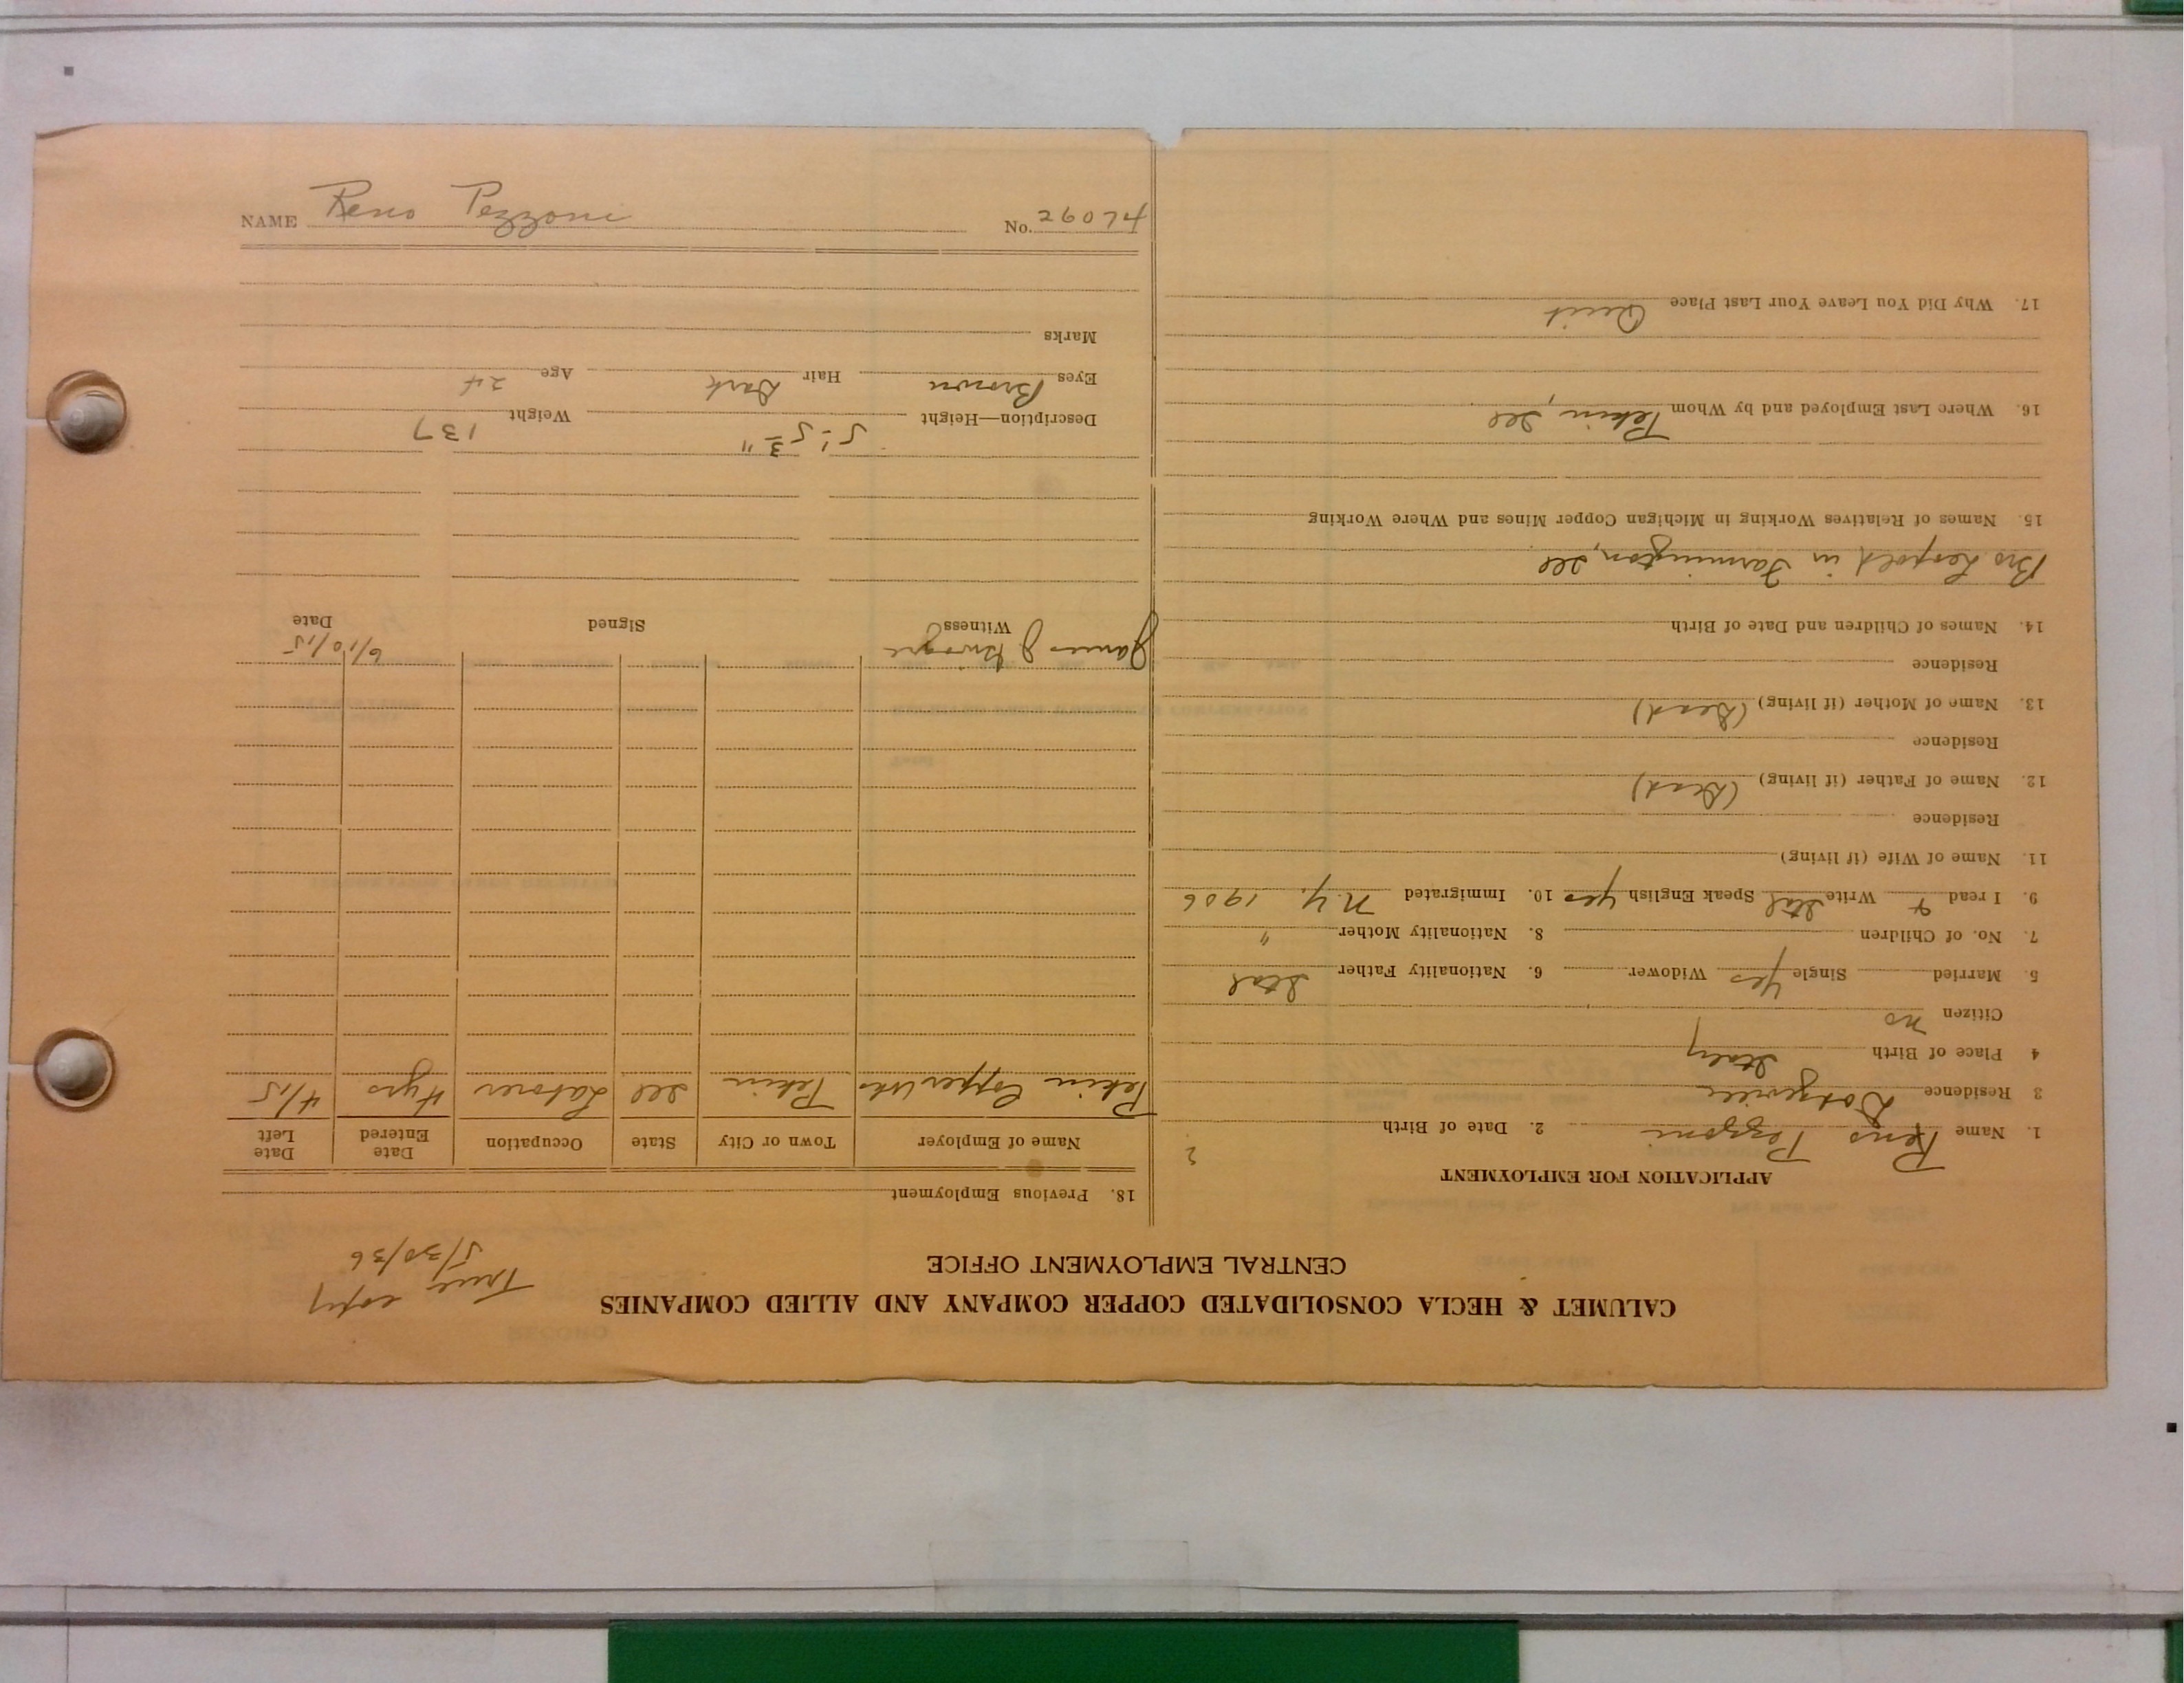 CALUMET & HECLA CONSOLIDATED COPPER COMPANY AND ALLIED COMPANIES
CENTRAL EMPLOYMENT OFFICE
True copy
5/30/36
APPLICATION FOR EMPLOYMENT
1. Name Reno Pezzoni 2. Date of Birth ?
3 Residence
4 Place of Birth Italy
Citizen no
5. Married Single yes Widower 6. Nationality Father Ital
7. No. of Children 8. Nationality Mother "
9. I read & Write Ital Speak English yes 10. Immigrated N.Y. 1906
11. Name of Wife (if living)
Residence
12. Name of Father (if living) (Dead)
Residence
13. Name of Mother (if living) (Dead)
Residence
14. Names of Children and Date of Birth
Bro Leopold in Farmington, Ill
15. Names of Relatives Working in Michigan Copper Mines and Where Working
16. Where Last Employed and by Whom Pekin, Ill
17. Why Did You Leave Your Last Place Quit
18. Previous Employment
Name of Employer Town or City State Occupation Date Entered Date Left
Pekin Copper Wks Pekin Ill Laborer 4 yrs 4/15
James J 6/10/15
Witness Signed Date
Description—Height 5'-5 3/4" Weight 137
Eyes Brown Hair Dark Age 24
Marks
NAME Reno Pezzoni No. 26074